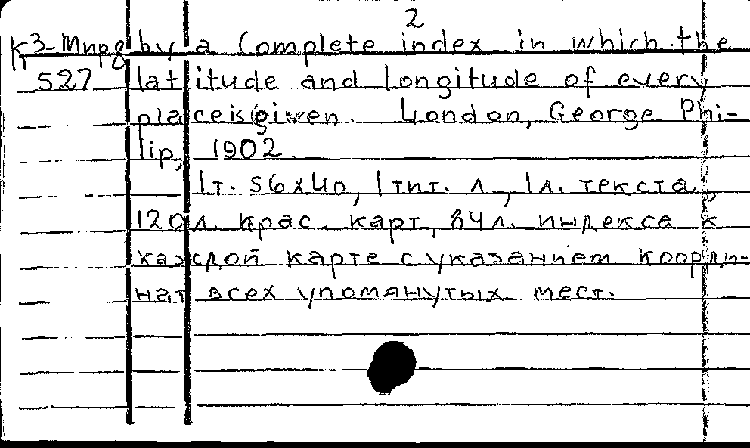 2
К3-Мирд by a Complete index in which the
527 latitude and longitude of every
place is given. London, George Phi-
lip, 1902
1т. 56х40, 1 тит. л., 1л. текста,
120л. крас. карт, 84л. индекса к
каждой карте с указанием коорди-
нат всех упомянутых мест.